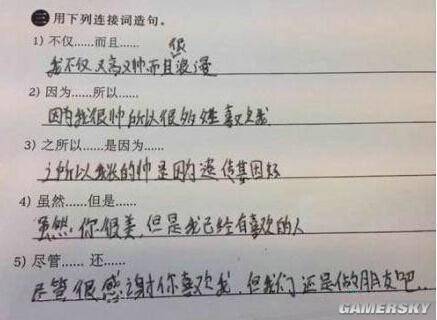 三 用下列连接词造句。
1) 不仅......而且......
我不仅又高又帅而且很浪漫
2) 因为......所以......
因为我很帅所以很多女生喜欢我
3) 之所以......是因为......
之所以我长的帅是因为遗传基因好
4) 虽然......但是......
虽然你很美，但是我已经有喜欢的人
5) 尽管...... 还......
尽管很感谢你喜欢我，但我们还是做朋友吧..
GAMERSKY